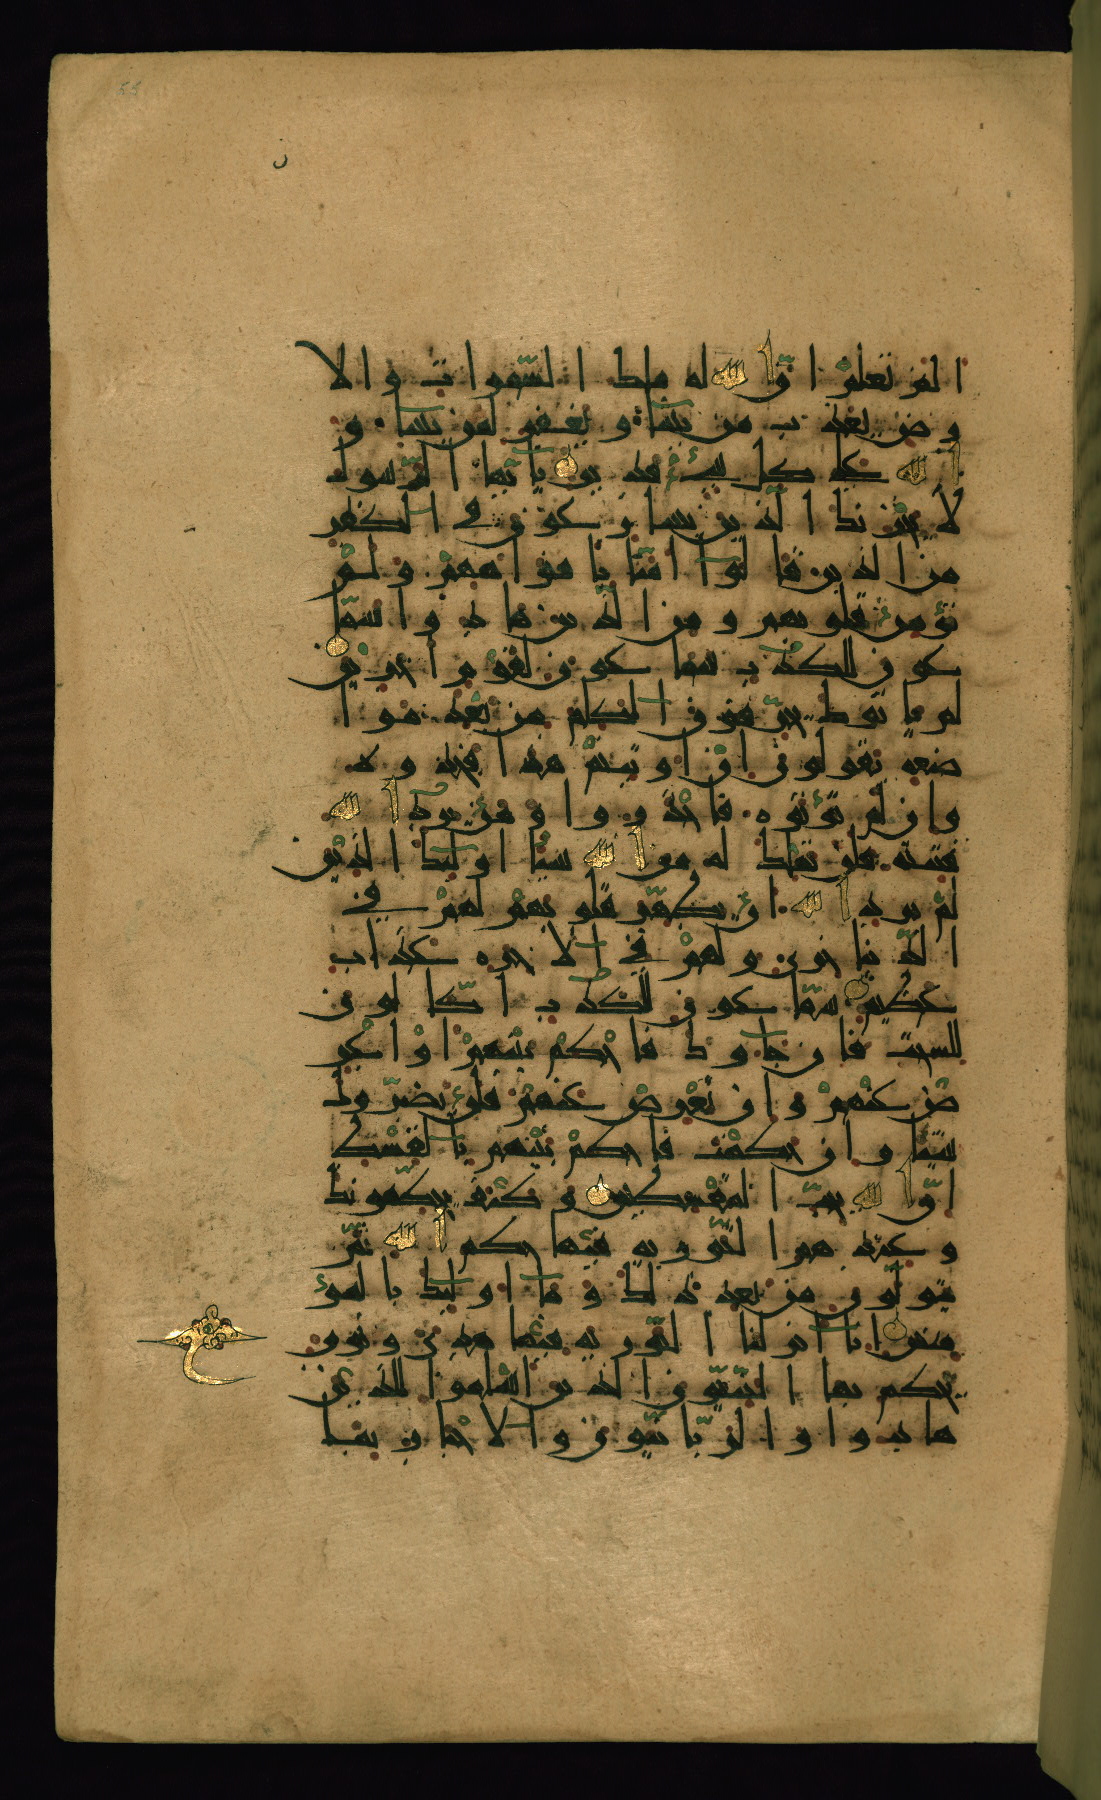 55
ن
الم تعلم ان الله له ملك السموات والا
رض يعذب من يشاء ويغفر لمن يشاء و
الله على كل شىء قدير يايها الرسول
لا يحزنك الذين يسارعون في الكفر
من الذين قالوا امنا بافواههم ولم
تؤمن قلوبهم ومن الذين هادوا سما
عون للكذب سماعون لقوم اخرين
لم ياتوك يحرفون الكلم من بعد موا
ضعه يقولون ان اوتيتم هذا فخذوه
وان لم تؤتوه فاحذروا ومن يرد الله
فتنته فلن تملك له من الله شيئا اولئك الذين
لم يرد الله ان يطهر قلوبهم لهم في
الدنيا خزي ولهم في الاخرة عذاب
عظيم سماعون للكذب اكالون
للسحت فان جاؤك فاحكم بينهم او اعر
ض عنهم وان تعرض عنهم فلن يضروك
شيئا وان حكمت فاحكم بينهم بالقسط
ان الله يحب المقسطين وكيف يحكمونك
وعندهم التورية فيها حكم الله ثم
يتولون من بعد ذلك وما اولئك بالمؤ
منين انا انزلنا التورية فيها هدى ونور
يحكم بها النبيون الذين اسلموا للذين
هادوا والربانيون والاحبار بما